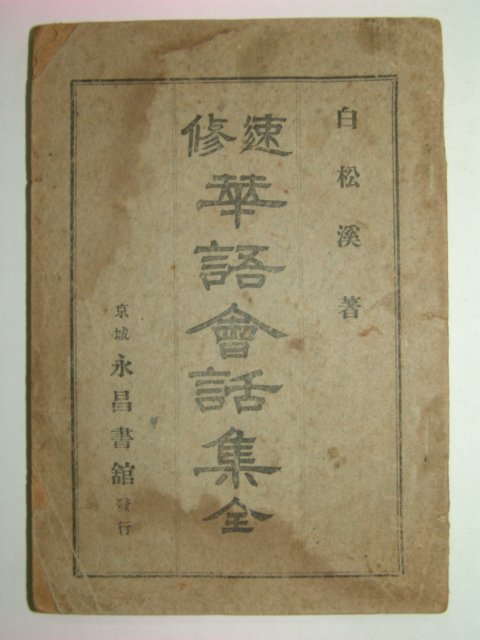 白松溪著
速修
華語會話集全
京城永昌書舘發行